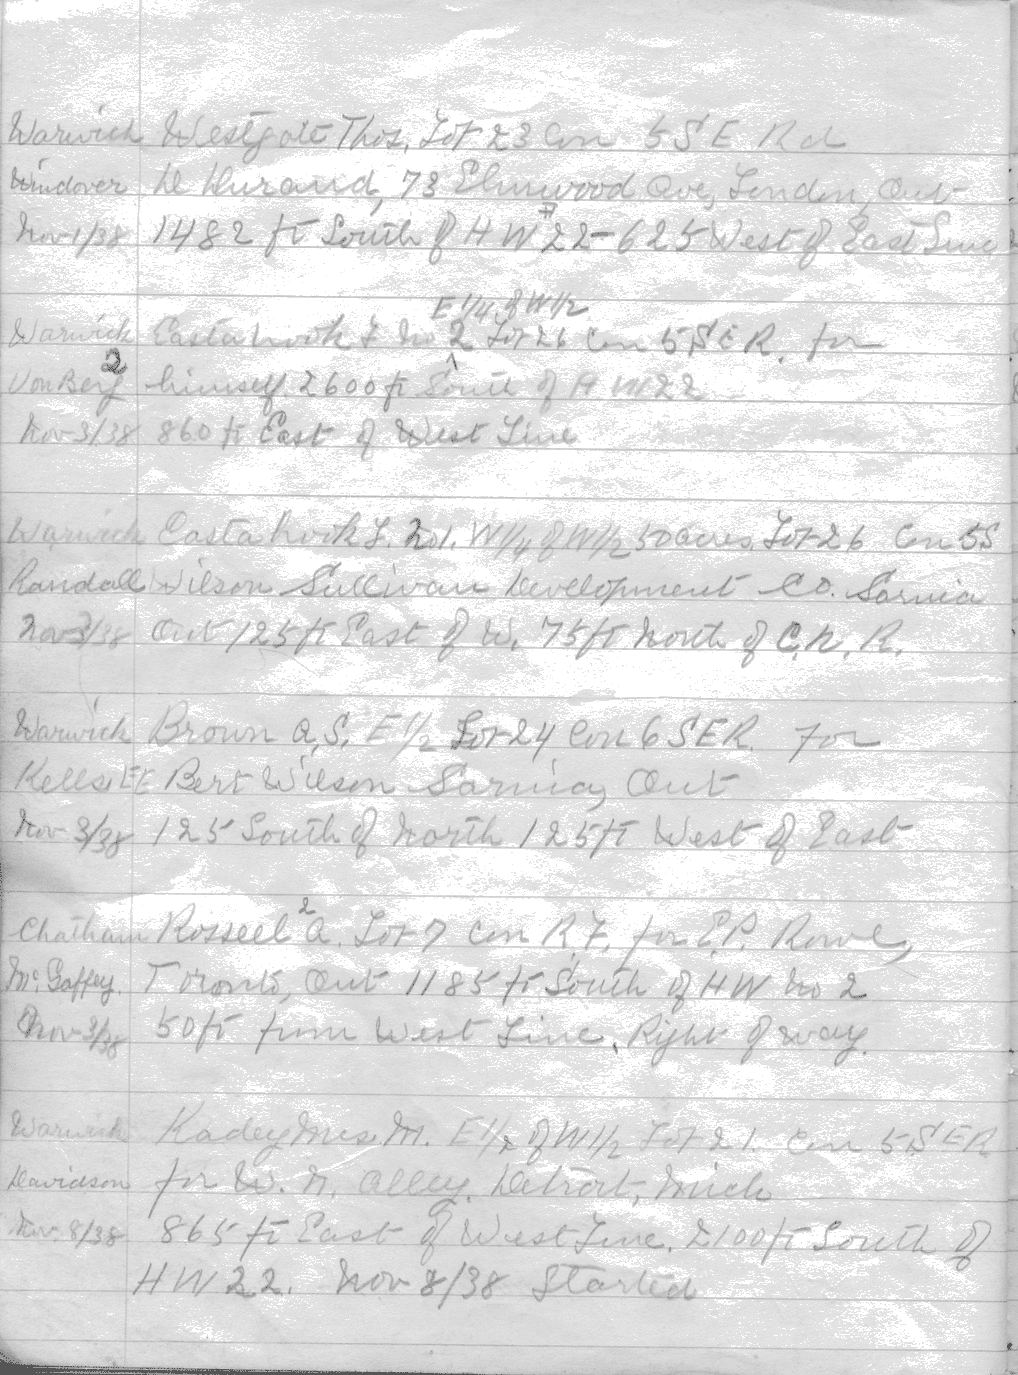 Warwick Westgate Thos. Lot 23 Con 5 S E Rd
Windover D Durand, 73 Elmwood Ave, London, Ont
Nov 1/38 1482 ft South of H W #22 - 625 West of East Line
E 1/4 of W 1/2
Warwick Eastabrook F No 2 Lot 26 Con 5 S E R. for
2
Von Berg himself. 2600 ft South of H W 22
Nov 3/38 860 ft East of West Line
Warwick Eastabrook F. No 1. W 1/4 of W 1/2 50 Acres Lot 26 Con 5 S
Randall Wilson Sullivan Development Co. Sarnia
Nov 3/38 Ont 125 ft East of W. 75 ft North of C. N. R.
Warwick Brown A. S. E 1/2 Lot 24 Con 6 S E R. for
Kells. EE Bert Wilson Sarnia, Ont
Nov 3/38 125 South of North 125 ft West of East
Chatham Rosseel 2 A. Lot 7 Con R. F. for E. P. Rowe,
McGaffey. Toronto, Ont 1185 ft South of H W No 2
Nov 3/38 50 ft from West Line. Right of way.
Warwick Kadey Mrs. M. E 1/2 of W 1/2 Lot 21. Con 5 S E R
Davidson for W. N. Alley. Detroit, Mich
Nov 8/38 865 ft East of West Line. 2100 ft South of
H W 22. Nov 8/38 Started